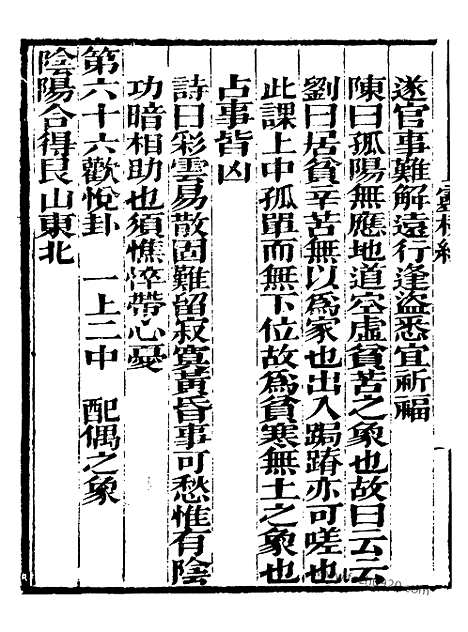 遂官事難解遠行逢盜悉宜祈福
陳曰孤陽無應地道空虛貧苦之象也故曰云云
劉曰居貧辛苦無以爲家也出入跼蹐亦可嗟也
此課上中孤單而無下位故爲貧寒無土之象也
占事皆凶
詩曰彩雲易散固難留寂寞黃昏事可愁惟有陰
功暗相助也須憔悴帶心憂
第六十六歡悅卦 一上二中 配偶之象
陰陽合得艮山東北